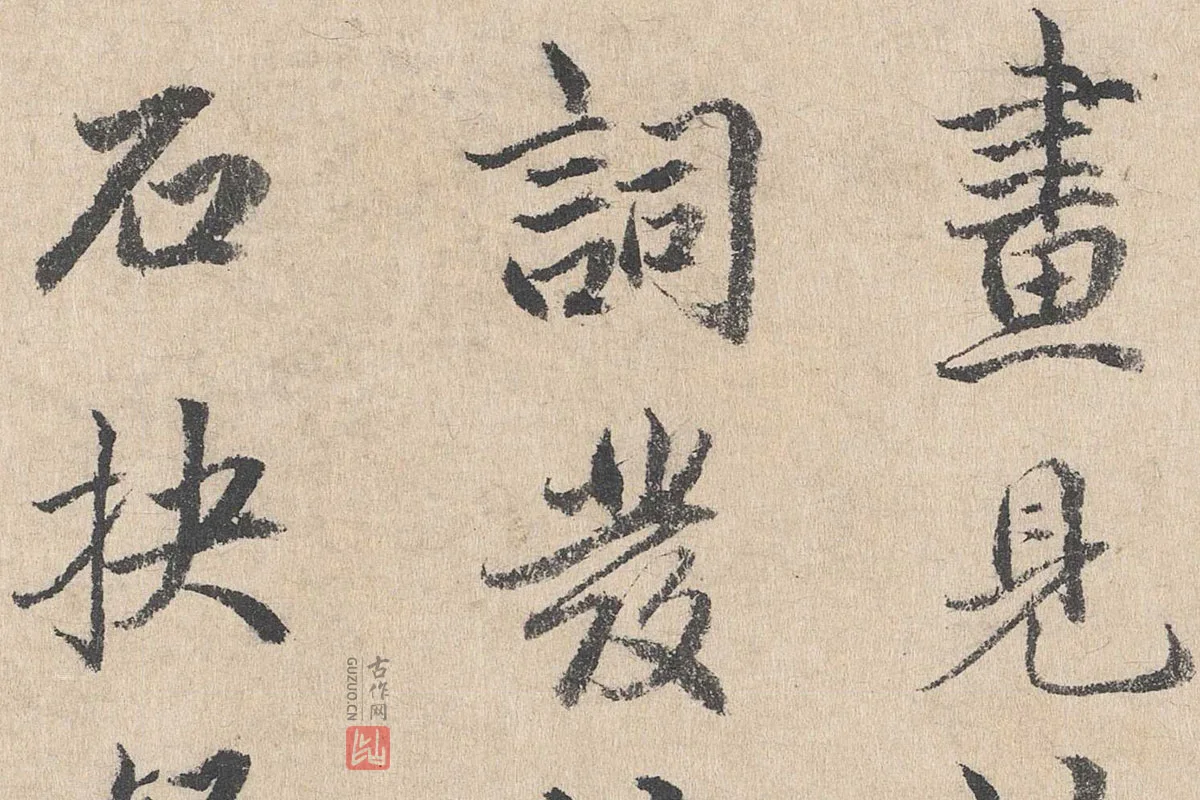 畫見
詞發
石抉
古作网
GUZUO.CN